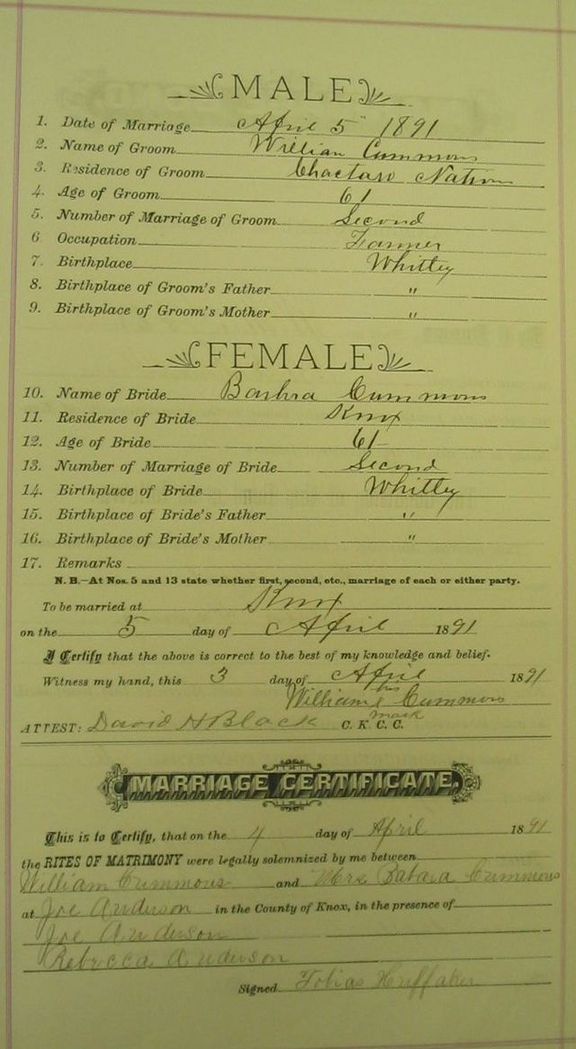 MALE
1. Date of Marriage April 5 1891
2. Name of Groom William Cummons
3. Residence of Groom Choctaw Nation
4. Age of Groom 61
5. Number of Marriage of Groom Second
6 Occupation Farmer
7 Birthplace Whitley
8. Birthplace of Groom's Father "
9. Birthplace of Groom's Mother "
FEMALE
10. Name of Bride Barbra Cummons
11. Residence of Bride Knox
12. Age of Bride 61
13. Number of Marriage of Bride Second
14. Birthplace of Bride Whitley
15. Birthplace of Bride's Father "
16. Birthplace of Bride's Mother "
17. Remarks
N. B.—At Nos. 5 and 13 state whether first, second, etc., marriage of each or either party.
To be married at Knox
on the 5 day of April 1891
I Certify that the above is correct to the best of my knowledge and belief.
Witness my hand, this 3 day of April 1891
his
William Cummons
mark
ATTEST: David H Black C. K. C. C.
MARRIAGE CERTIFICATE.
This is to Certify, that on the 4 day of April 1891
the RITES OF MATRIMONY were legally solemnized by me between
William Cummons and Mrs Babara Cummons
at Joe Anderson in the County of Knox, in the presence of
Joe Anderson
Rebecca Anderson
Signed Tobias Huffaker